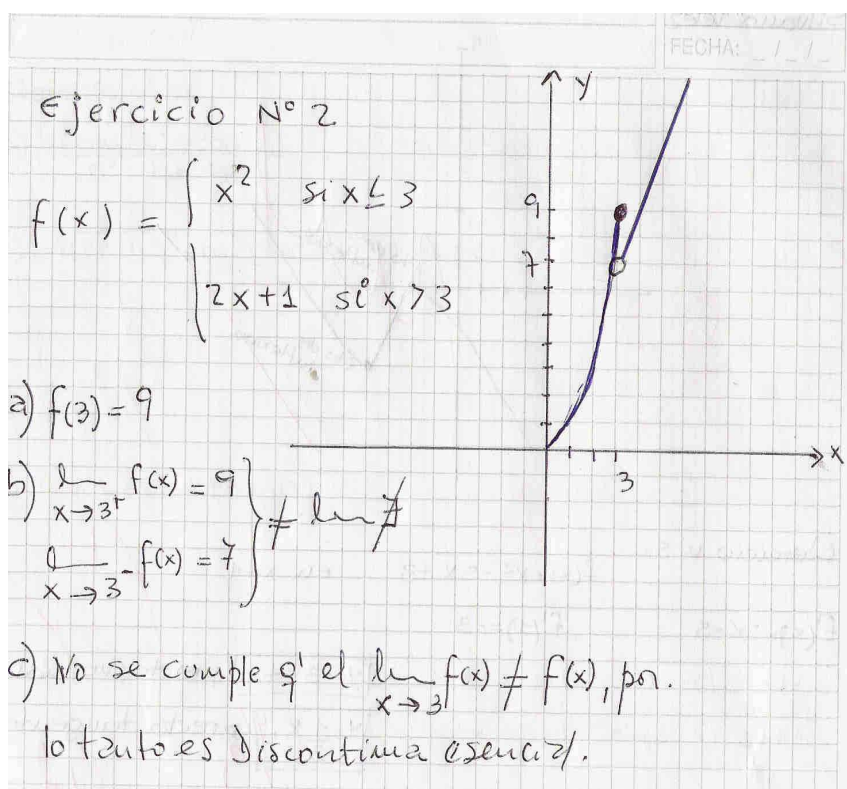 FECHA: _/_/_
Ejercicio N° 2
f(x) = { x² si x ≤ 3
2x+1 si x > 3
a) f(3) = 9
b) lim x→3⁺ f(x) = 9
lim x→3⁻ f(x) = 7 } ≠ lim ∄
c) No se cumple q' el lim x→3 f(x) ≠ f(x), por.
lo tanto es Discontinua esencial.
y
9
7
3
x